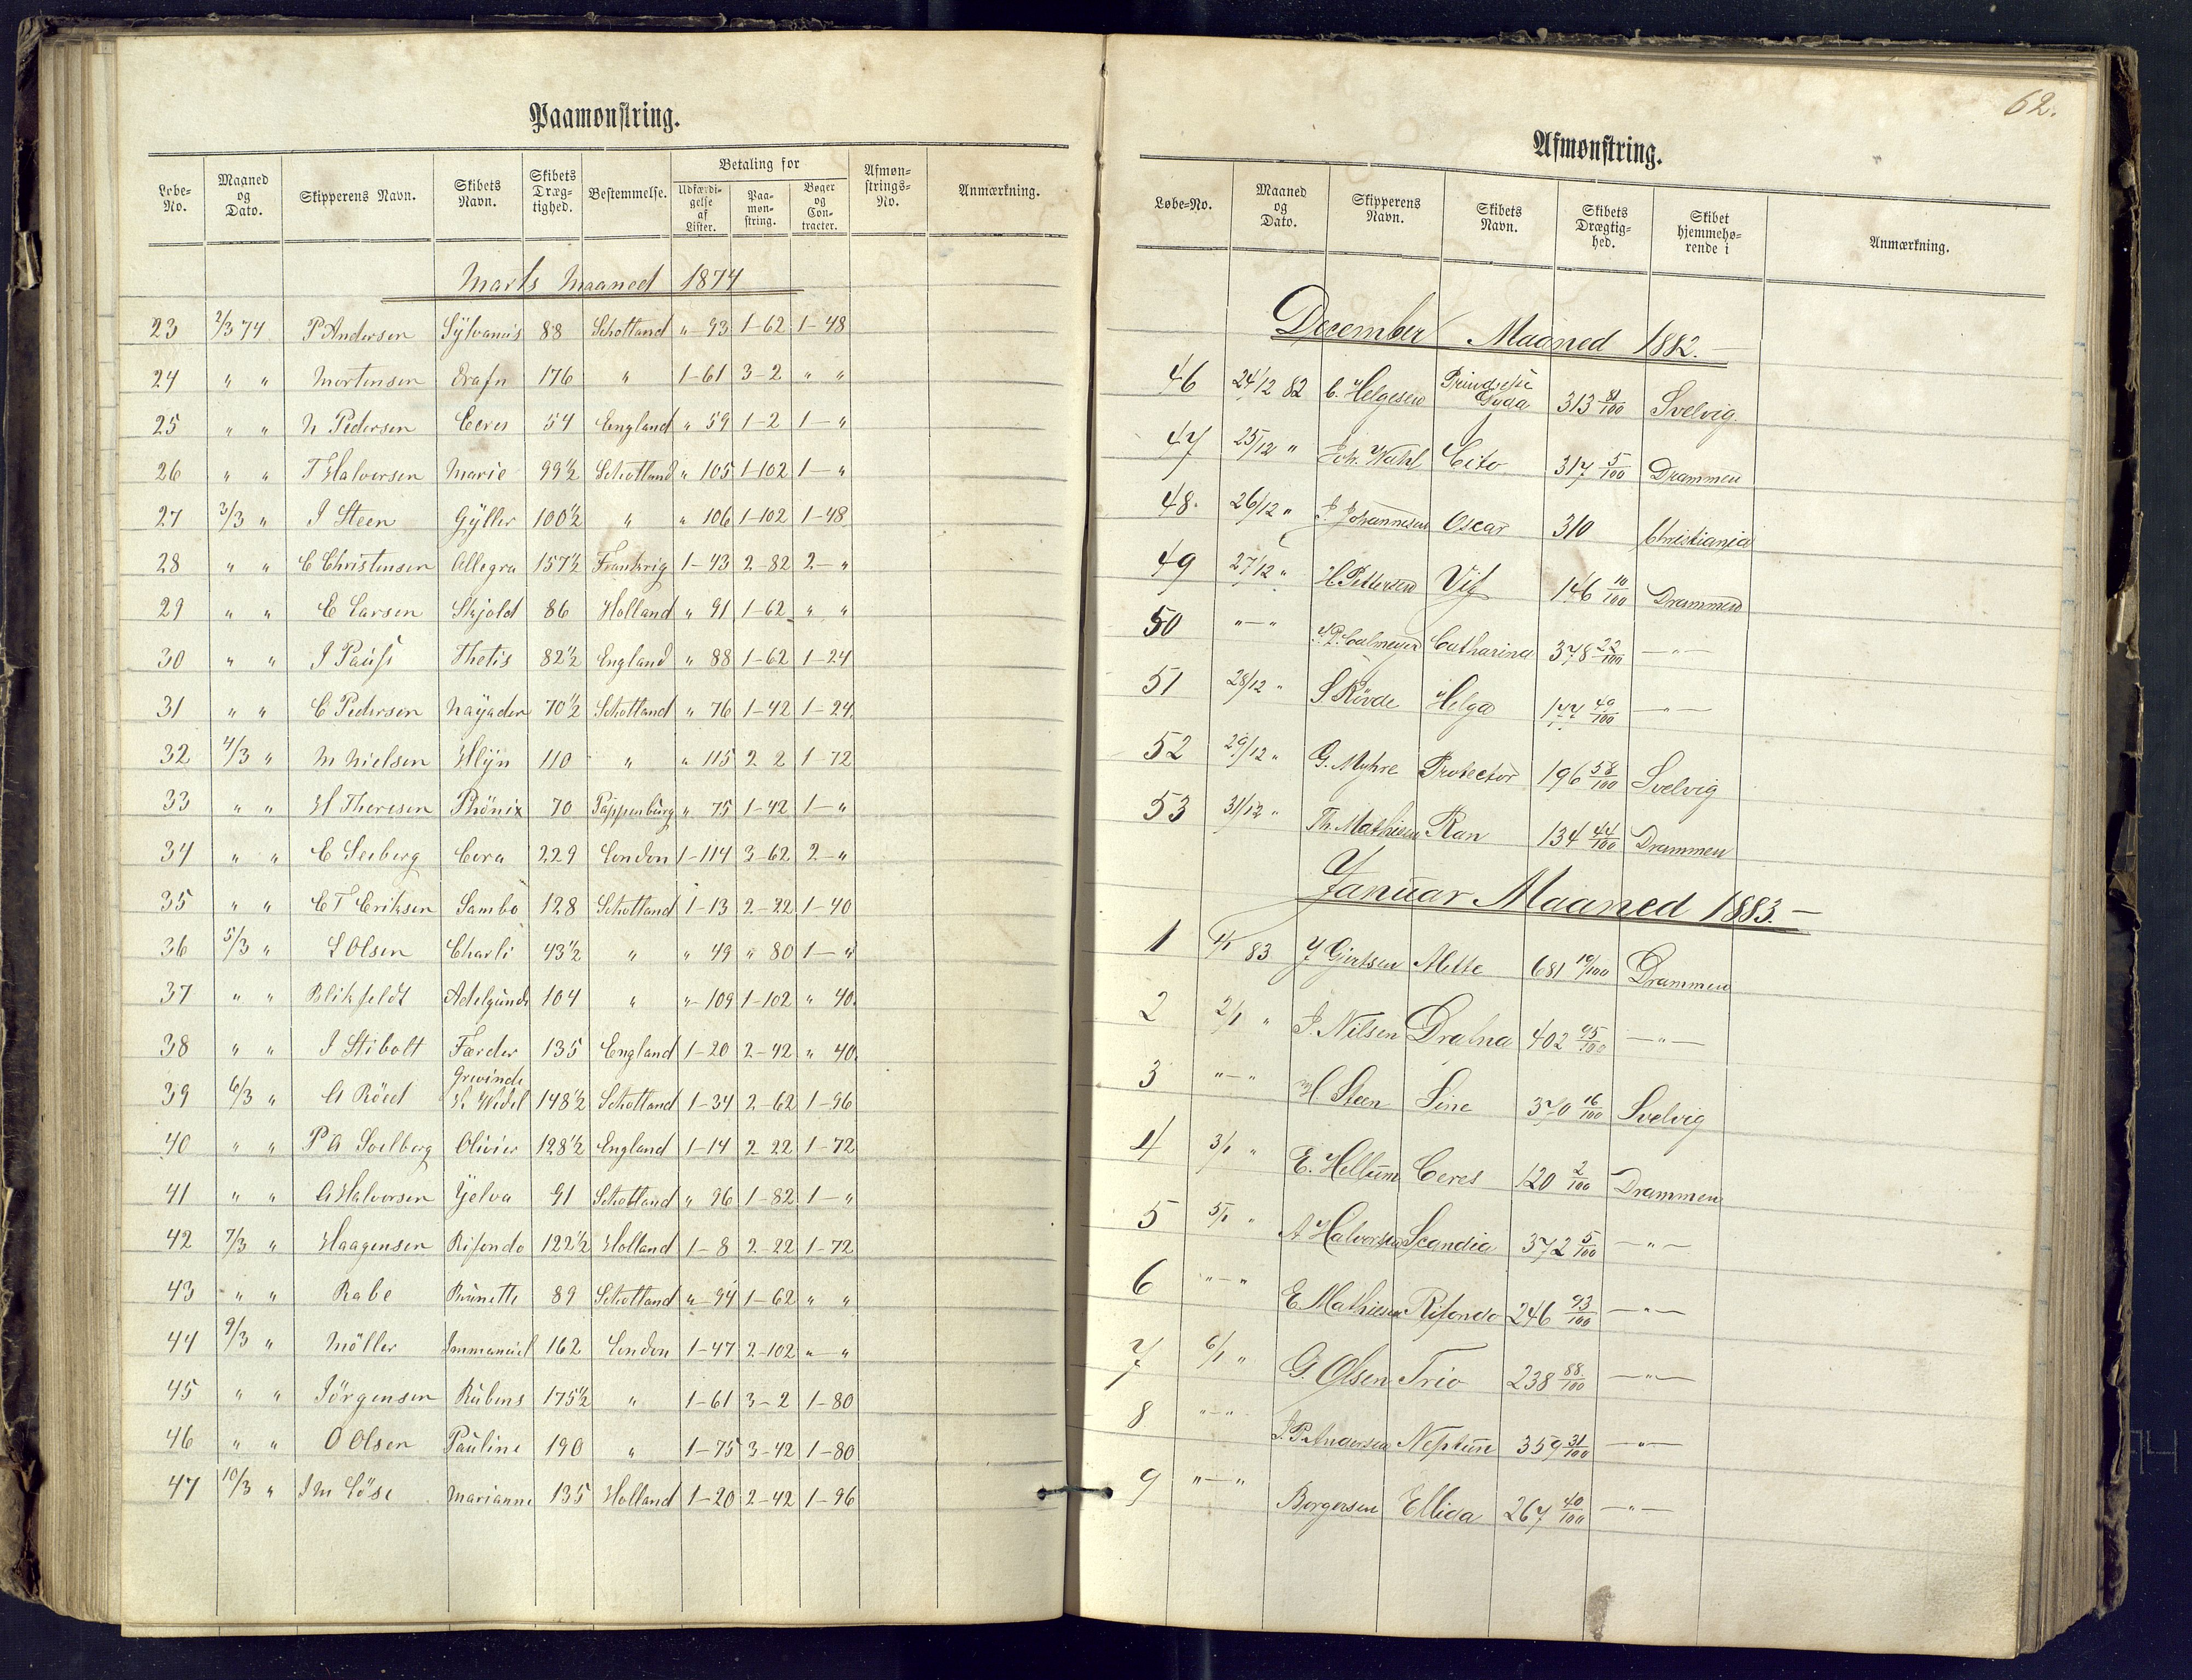 Paamønstring.
Løbe-No. | Maaned og Dato. | Skipperens Navn. | Skibets Navn. | Skibets Dræg-tighed. | Bestemmelse. | Betaling for | Udfærdi-gelse af Lister. | Paa-møn-string. | Bøger og Con-tracter. | Afmøn-strings-No. | Anmærkning.
Marts Maaned 1874
23 2/3 74 P Andersen Sylvanus 88 Schottland " 93 1-62 1-48
24 " " Mortensen Drafn 176 " 1-61 3-2 " "
25 " " N Pedersen Ceres 54 England " 59 1-2 1-"
26 " " T Halvorsen Marie 99 1/2 Schottland " 105 1-102 1-"
27 3/3 " J Steen Gyller 100 1/2 " " 106 1-102 1-48
28 " " C Christensen Allegra 157 1/2 Frankrig 1-43 2-82 2-"
29 " " E Larsen Skjold 86 Holland " 91 1-62 " "
30 " " J Pauss Thetis 82 1/2 England " 88 1-62 1-24
31 " " C Pedersen Nayaden 70 1/2 Schottland " 76 1-42 1-24
32 4/3 " M Nielsen Hlyn 110 " " 115 2 2 1-72
33 " " H Thoresen Phönix 70 Pappenburg " 75 1-42 1-"
34 " " C Seeberg Cora 229 London 1-114 3-62 2-"
35 " " C T Eriksen Sambo 128 Schottland 1-13 2-22 1-40
36 5/3 " L Olsen Charli 43 1/2 " " 49 " 80 1-"
37 " " Blikfeldt Adelgunde 104 " "-109 1-102 " 40.
38 " " J Stibolt Færder 135 England 1-20 2-42 " 40.
39 6/3 " A Röed Grevinde W. Wedel 148 1/2 Schottland 1-34 2-62 1-96
40 " " P A Soelberg Olivier 128 1/2 England 1-14 2 22 1-72
41 " " A Halvorsen Yelva 91 Schottland " 96 1-82 1-"
42 7/3 " Haagensen Rifondo 122 1/2 Holland 1-8 2-22 1-72
43 " " Rabe Brünette 89 Schottland "-94 1-62 " "
44 9/3 " Möller Immanuel 162 London 1-47 2-102 "-"
45 " " Jörgensen Rubens 175 1/2 " 1-61 3-2 1-80
46 " " O Olsen Pauline 190 " 1-75 3-42 1-80
47 10/3 " J M Löse Marianne 135 Holland 1-20 2-42 1-96
62.
Afmønstring.
Løbe-No. | Maaned og Dato. | Skipperens Navn. | Skibets Navn. | Skibets Drægtig-hed. | Skibet hjemmehø-rende i | Anmærkning.
December Maaned 1882.-
46 24/12 82 C. Helgesen Prindsesse Gyda 313 81/100 Svelvig.
47 25/12 " Joh. Wahl Cito 317 5/100 Drammen
48. 26/12 " J. Johannesen Oscar 310 Christiania
49 27/12 " H Pettersen Vif 146 10/100 Drammen
50 "-" Calmeyer Catharina 378 22/100 -"-
51 28/12 " S Rövde Helga 177 49/100 -"-
52 29/12 " G. Myhre Protector 196 58/100 Svelvig
53 31/12 " Th. Mathisen Ran 134 44/100 Drammen
Januar Maaned 1883.-
1 1/1 83 J Gjertsen Mette 681 10/100 Drammen
2 2/1 " J. Nilsen Drabna 402 95/100 -"-
3 "-" H. Steen Sine 370 16/100 Svelvig
4 3/1 " E. Hellum Ceres 120 2/100 Drammen
5 5/1 " A Halvorsen Scandia 372 5/100 -"-
6 "-" E Mathisen Rifondo 246 93/100 -"-
7 6/1 " G. Olsen Trio 238 88/100 -"-
8 "-" J P Andersen Neptun 359 31/100 -"-
9 "-" Borgersen Ellida 267 40/100 -"-